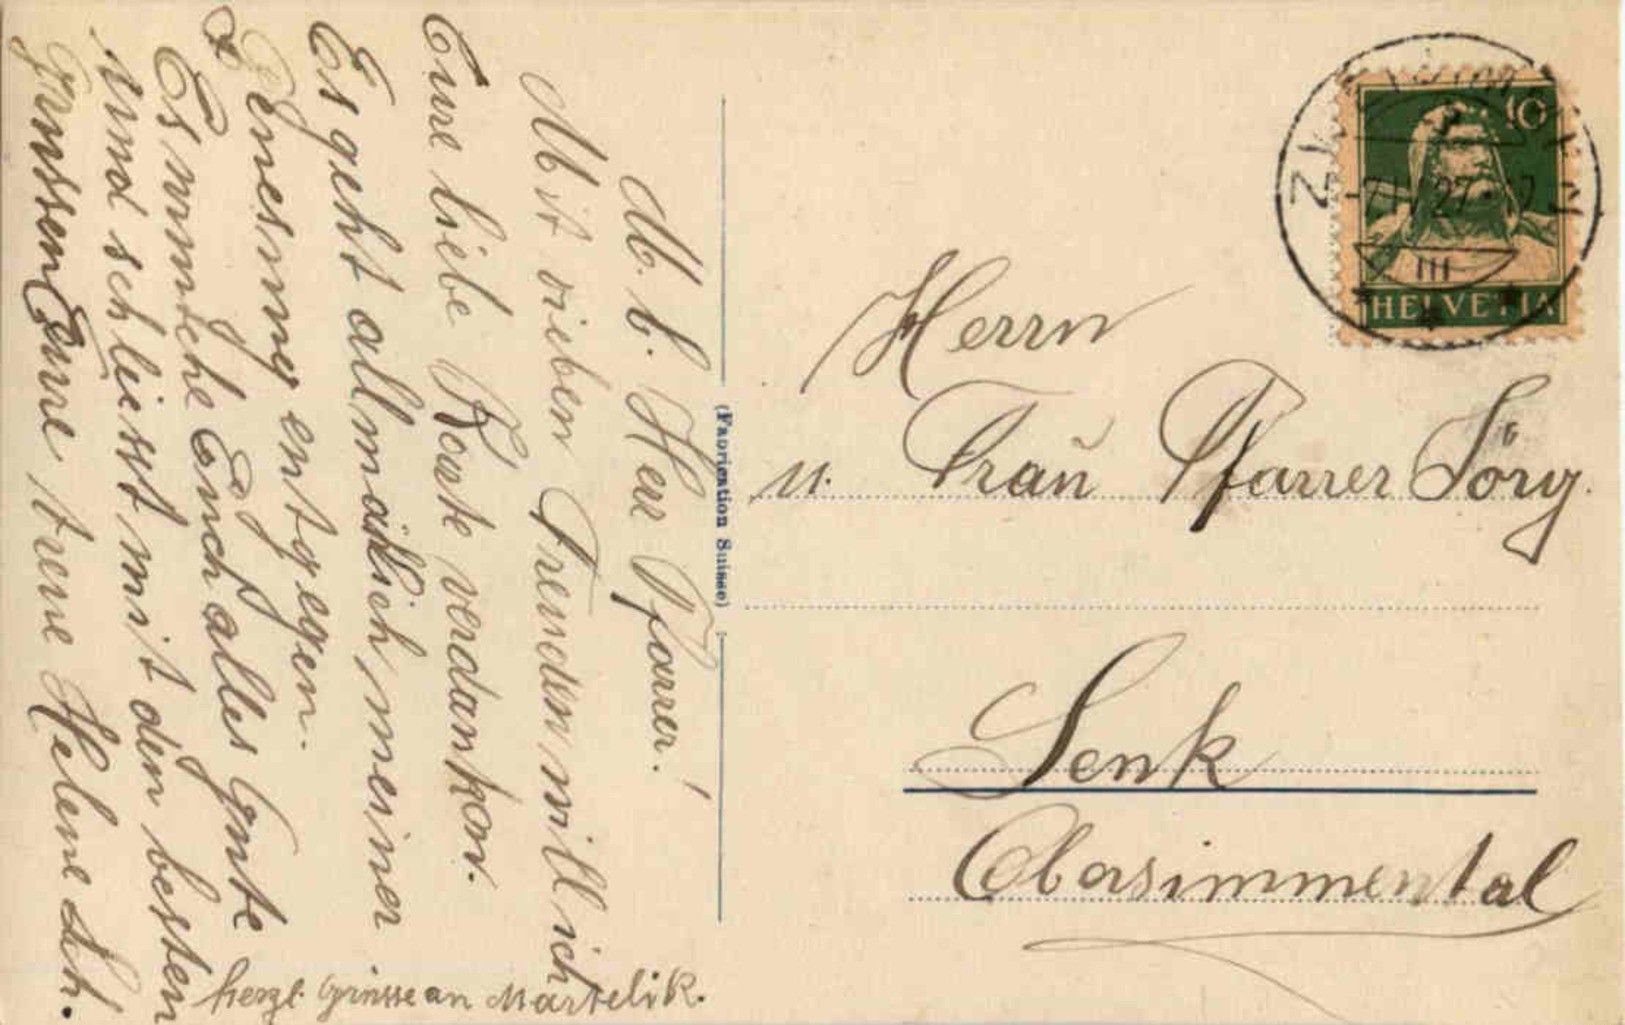 M. l. Herr Pfarrer!
Mit vielen Freuden will ich
Eure liebe Karte verdanken.
Es geht allmählich meiner
Genesung entgegen.
Es wünsche Euch alles Gute
und schliesst mit den besten
Grüssen Eure treue Helene Sch.
herzl. Grüsse an Marteli K.
(Fabrication Suisse)
ZWEISIMMEN
27
III
10
HELVETIA
Herrn
u. Frau Pfarrer Jörg.
Lenk
Obersimmental